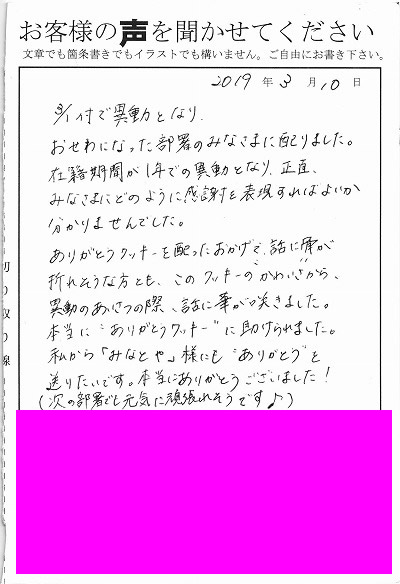 お客様の声を聞かせてください
文章でも箇条書きでもイラストでも構いません。ご自由にお書き下さい。
2019年3月10日
3/1付で異動となり、
おせわになった部署のみなさまに配りました。
在籍期間が1年での異動となり、正直、
みなさまにどのように感謝を表現すればよいか
分かりませんでした。
ありがとうクッキーを配ったおかげで、話に骨が
折れそうな方とも、このクッキーのかわいさから、
異動のあいさつの際、話に華が咲きました。
本当に"ありがとうクッキー"に助けられました。
私から「みなとや」様にも"ありがとう"を
送りたいです。本当にありがとうございました！
(次の部署でも元気に頑張れそうです♪)
切り取り線